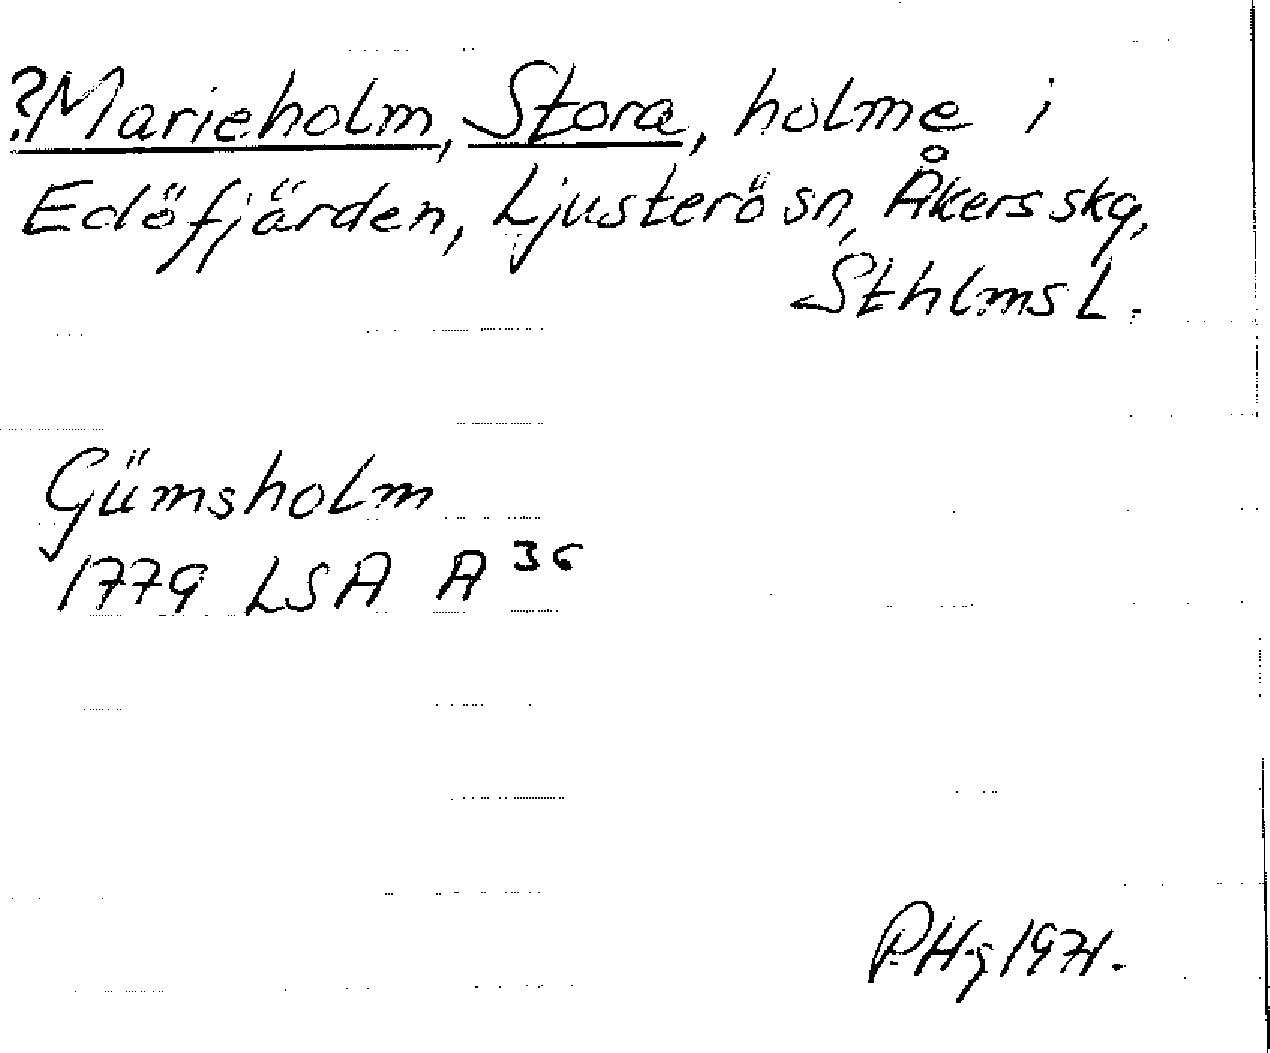 ?Marieholm, Stora, holme i
Edöfjärden, Ljusterö sn, Åkers skg,
Sthlms L.
Gümsholm
1779 LSA A 36
PHg 1971.